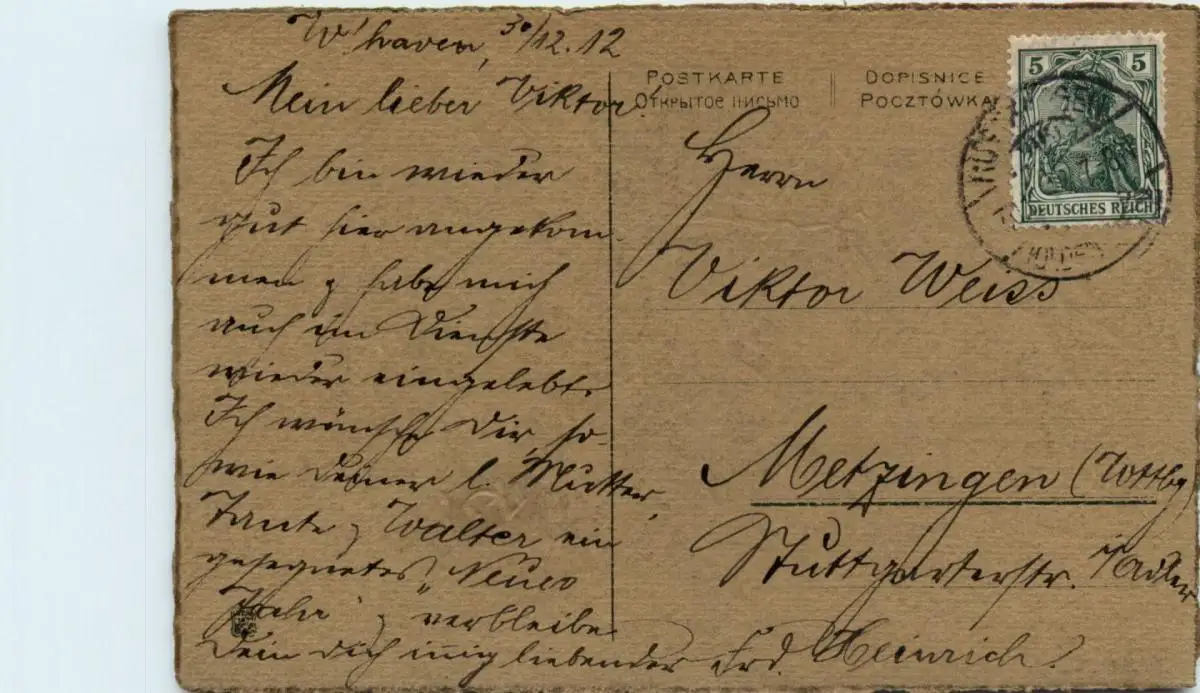 W'haven, 30/12.12
Mein lieber Viktor!
Ich bin wieder
gut hier angekom-
men & habe mich
auch im Dienste
wieder eingelebt.
Ich wünsche Dir, so-
wie Deiner l. Mutter,
Tante & Walter ein
gesegnetes „Neues
Jahr" & verbleibe
Dein Dich innig liebender Frd. Heinrich.
POSTKARTE
DOPISNICE
Открытое письмо
POCZTÓWKA
5 5
DEUTSCHES REICH
Herrn
Viktor Weiss
Metzingen (Wttbg)
Stuttgarterstr. i/Adler